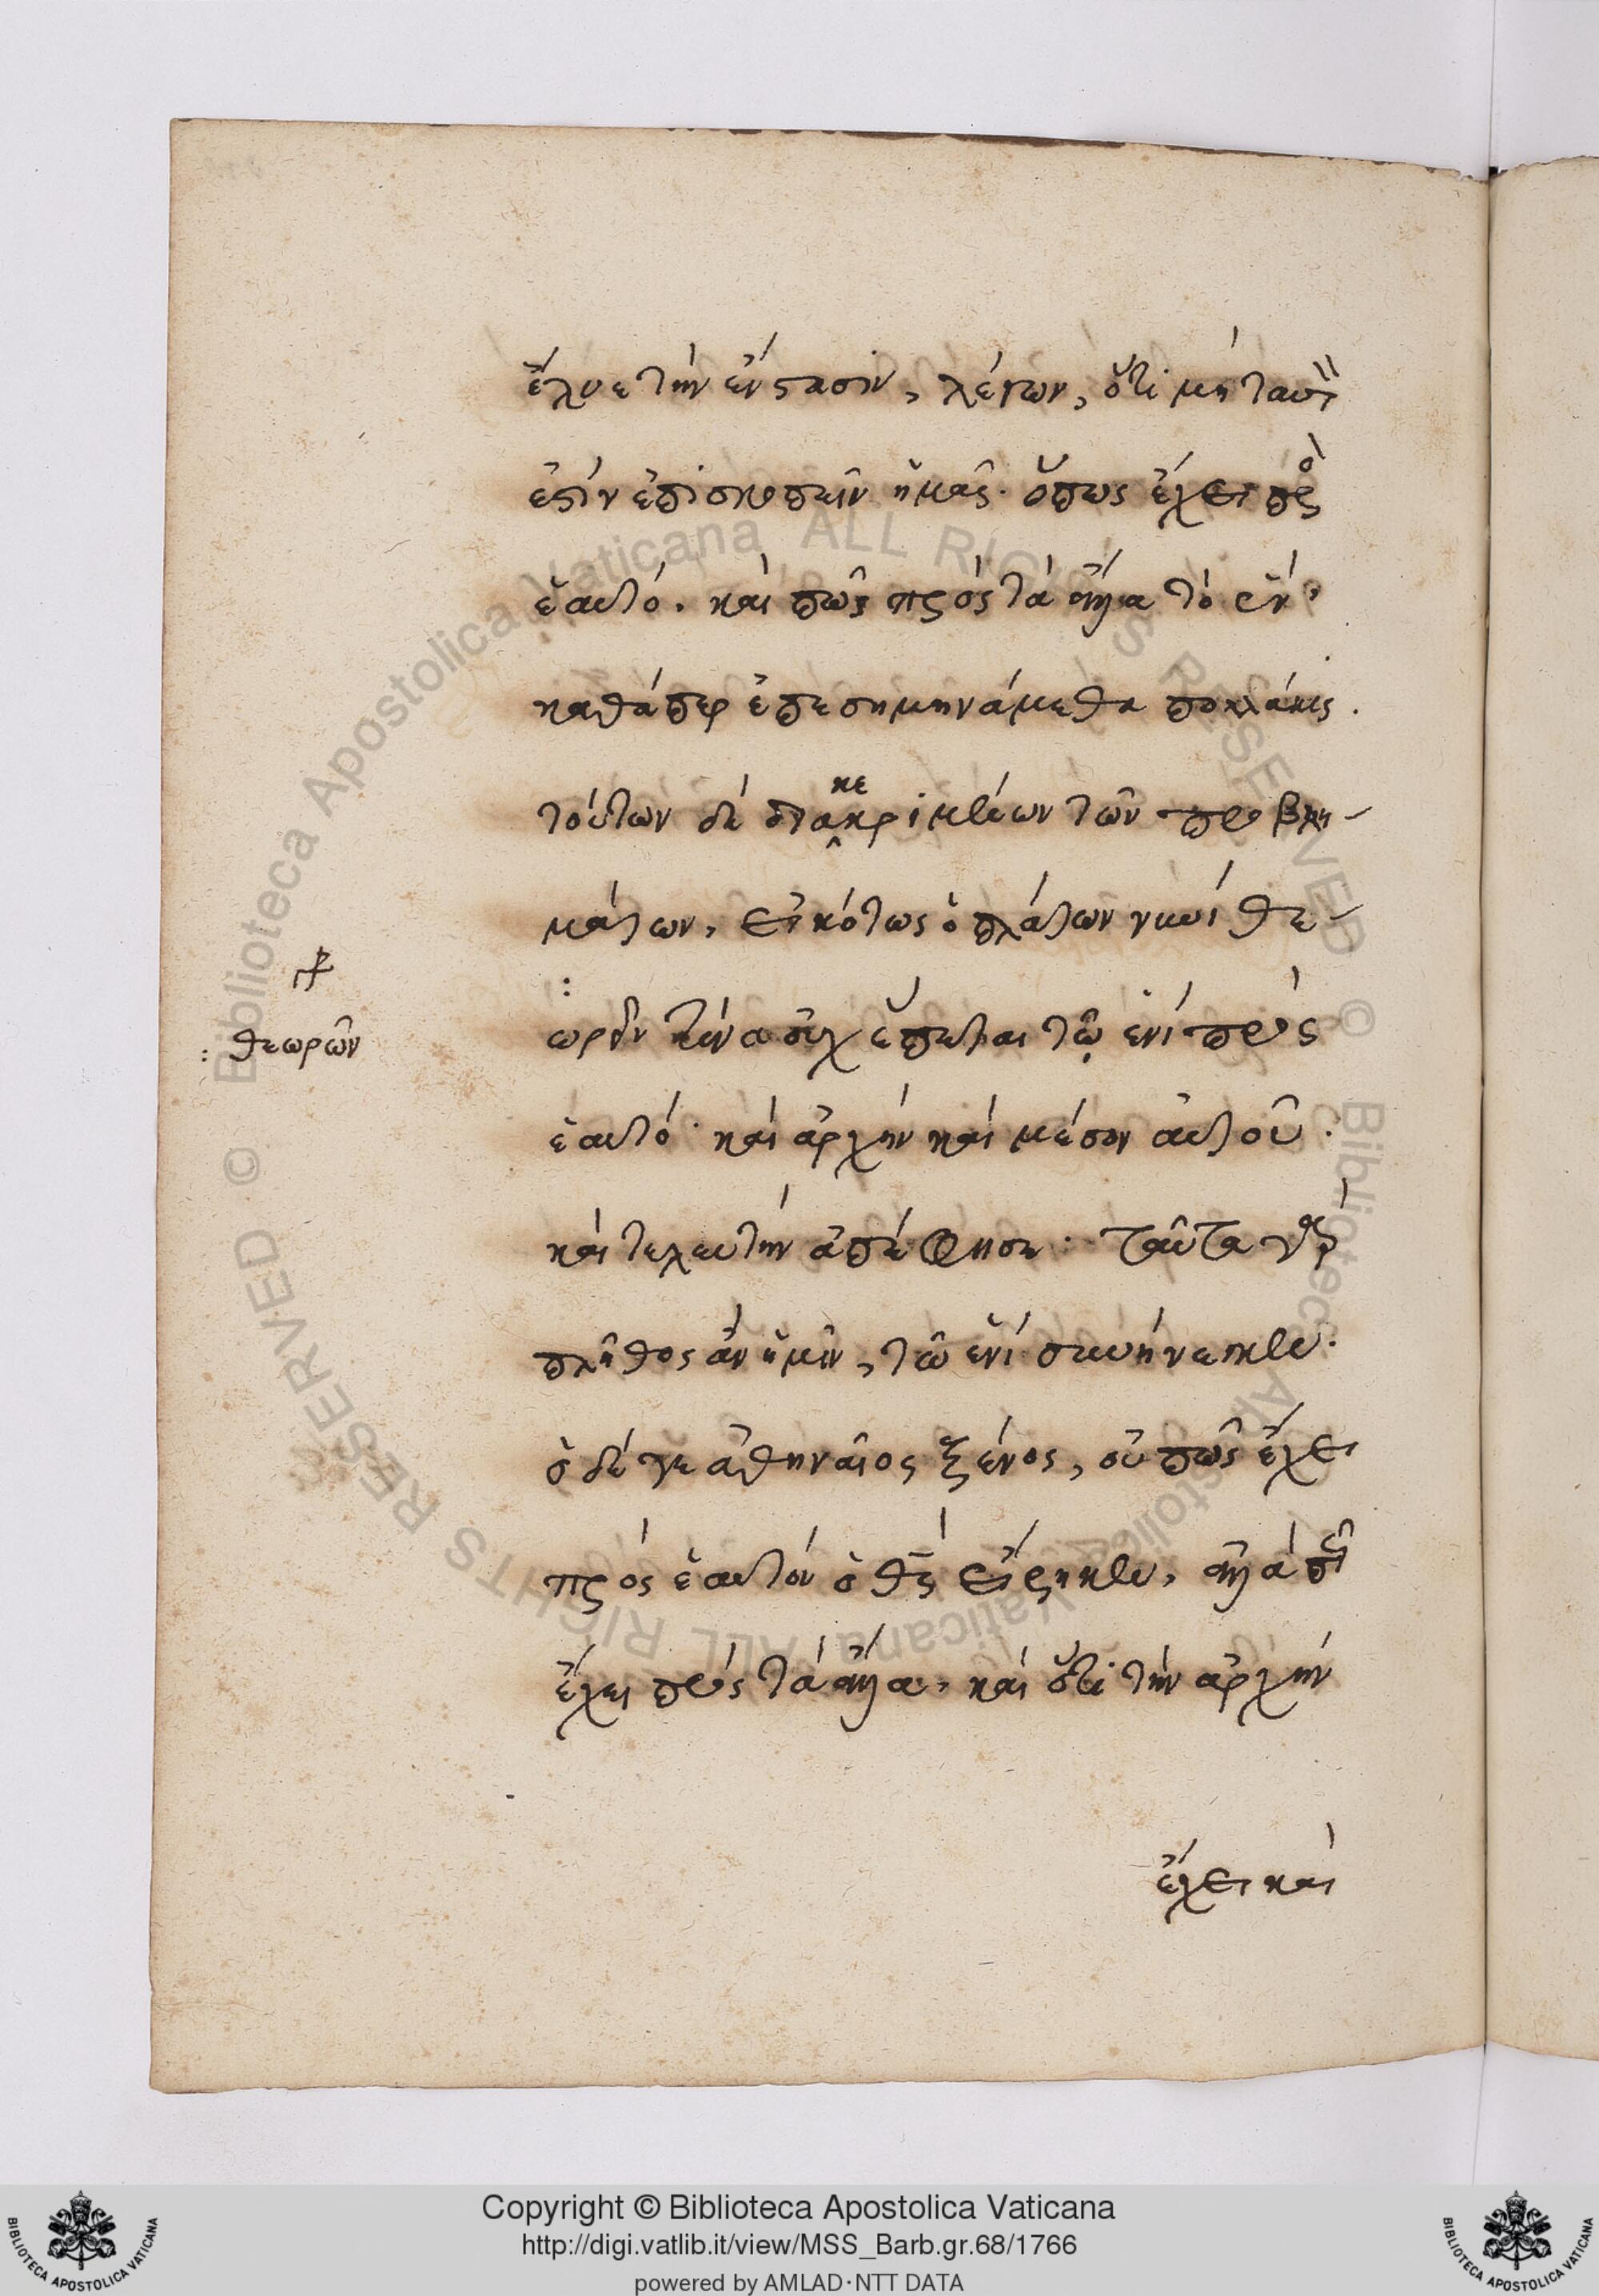 ἔλυε τὴν ἔνστασιν, λέγων, ὅτι μὴ ταυτὸν
ἐστὶν ἐπισκοπεῖν ἡμᾶς· ὅπως ἔχει πρὸς
ἑαυτό. καὶ πῶς πρὸς τὰ ἄλλα τὸ ἕν,
καθάπερ ἐπεσημηνάμεθα πολλάκις.
τούτων δὲ διακεκριμένων τῶν προβλη-
μάτων, εἰκότως ὁ πλάτων νυνὶ θε-
ωρεῖν τίνα οὐχ ἕπεται τῷ ἑνὶ πρὸς
: θεωρῶν
ἑαυτό· καὶ ἀρχὴν καὶ μέσον αὐτοῦ·
καὶ τελευτὴν ἀπέφησε· ταῦτα γὰρ
πλῆθος ἂν ἡμῖν, τῶ ἑνὶ συνήνεγκεν.
ὁ δέ γε ἀθηναῖος ξένος, οὐ πῶς ἔχει
πρὸς ἑαυτὸν ὁ θς εἴρηκεν, ἀλλὰ πῶς
ἔχει πρὸς τὰ ἄλλα, καὶ ὅτι τὴν ἀρχὴν
ἔχει καὶ
Copyright © Biblioteca Apostolica Vaticana
http://digi.vatlib.it/view/MSS_Barb.gr.68/1766
powered by AMLAD·NTT DATA
© Biblioteca Apostolica Vaticana ALL RIGHTS RESERVED © Biblioteca Apostolica Vaticana ALL RIGHTS RESERVED
BIBLIOTECA APOSTOLICA VATICANA
BIBLIOTECA APOSTOLICA VATICANA